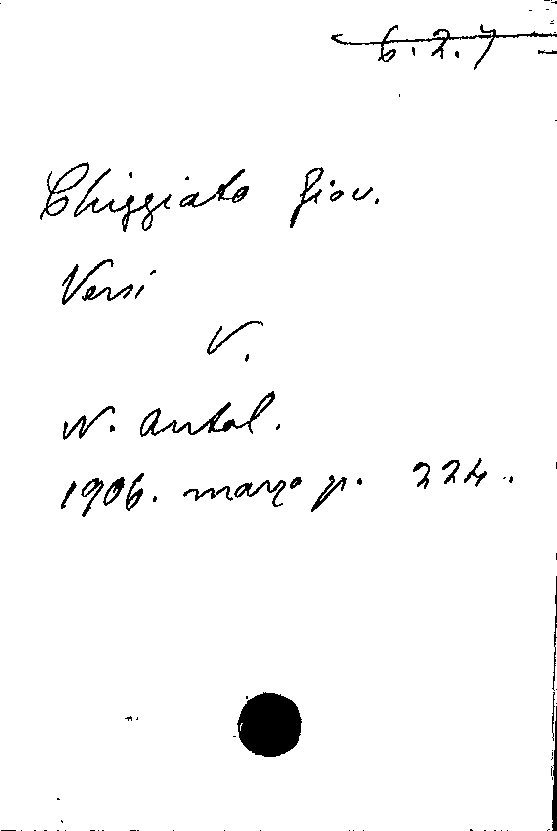 6.2.7
Chiggiato Giov.
Versi
V.
N. Antol.
1906. marzo p. 224.